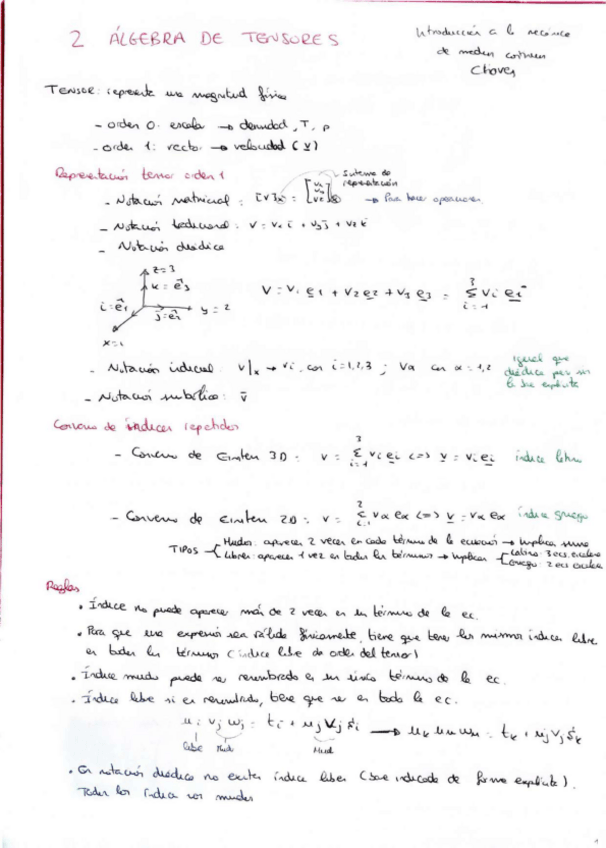 2 ÁLGEBRA DE TENSORES
Introducción a la mecánica
de medios continuos
Chaves
TENSOR: representa una magnitud física
- orden 0: escalar → densidad, T, p
- orden 1: vector → velocidad (v)
Representación tensor orden 1
Sistema de
representación
- Notación matricial : [v]x = → Para hacer operaciones
- Notación tradicional : v = vx i + vy j + vz k
- Notación diádica
z=3
k = e3
i=e1
j=e2
y = 2
x=1
V = V1 e1 + V2 e2 + V3 e3 = Σ Vi ei
3
i=1
- Notación indicial : v|x → vi, con i=1,2,3 ; Vα con α=1,2
igual que
diádica pero sin
la base explícita
- Notación simbólica : v
Convenio de índices repetidos
3
- Convenio de Einstein 3D : v = Σ vi ei <=> v = vi ei índice latino
i=1
2
- Convenio de Einstein 2D : v = Σ vα eα <=> v = vα eα índice griego
TIPOS
Mudos: aparecen 2 veces en cada término de la ecuación → implica suma
Libres: aparecen 1 vez en todos los términos → implican
Latino: 3 ecs. escalares
Griego: 2 ecs escalares
Reglas
• Índice no puede aparecer más de 2 veces en un término de la ec.
• Para que una expresión sea válida físicamente, tiene que tener los mismos índices libres
en todos los términos (índice libre da orden del tensor)
• Índice mudo puede ser renombrado en un único término de la ec.
• Índice libre si es renombrado, tiene que ser en toda la ec.
ui vj wj = ti + uj vj si → uk um wm = tk + uj vj sk
Libre Mudo Mudo
• En notación diádica no existen índices libres (base indicada de forma explícita).
Todos los índices son mudos
1